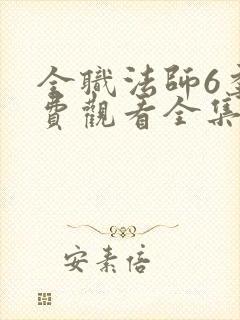 全職法師6
費觀看全集
安素倍